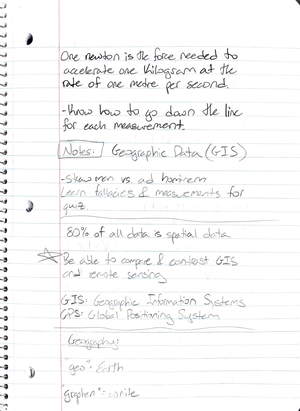 One newton is the force needed to
accelerate one kilogram at the
rate of one metre per second.
-Know how to go down the line
for each measurement.
Notes: Geographic Data (GIS)
-Straw man vs. ad hominem
Learn fallacies & measurements for
quiz.
80% of all data is spatial data
Be able to compare & contrast GIS
and remote sensing
GIS: Geographic Information Systems
GPS: Global Positioning System
Geography:
"geo": Earth
"graphen": write